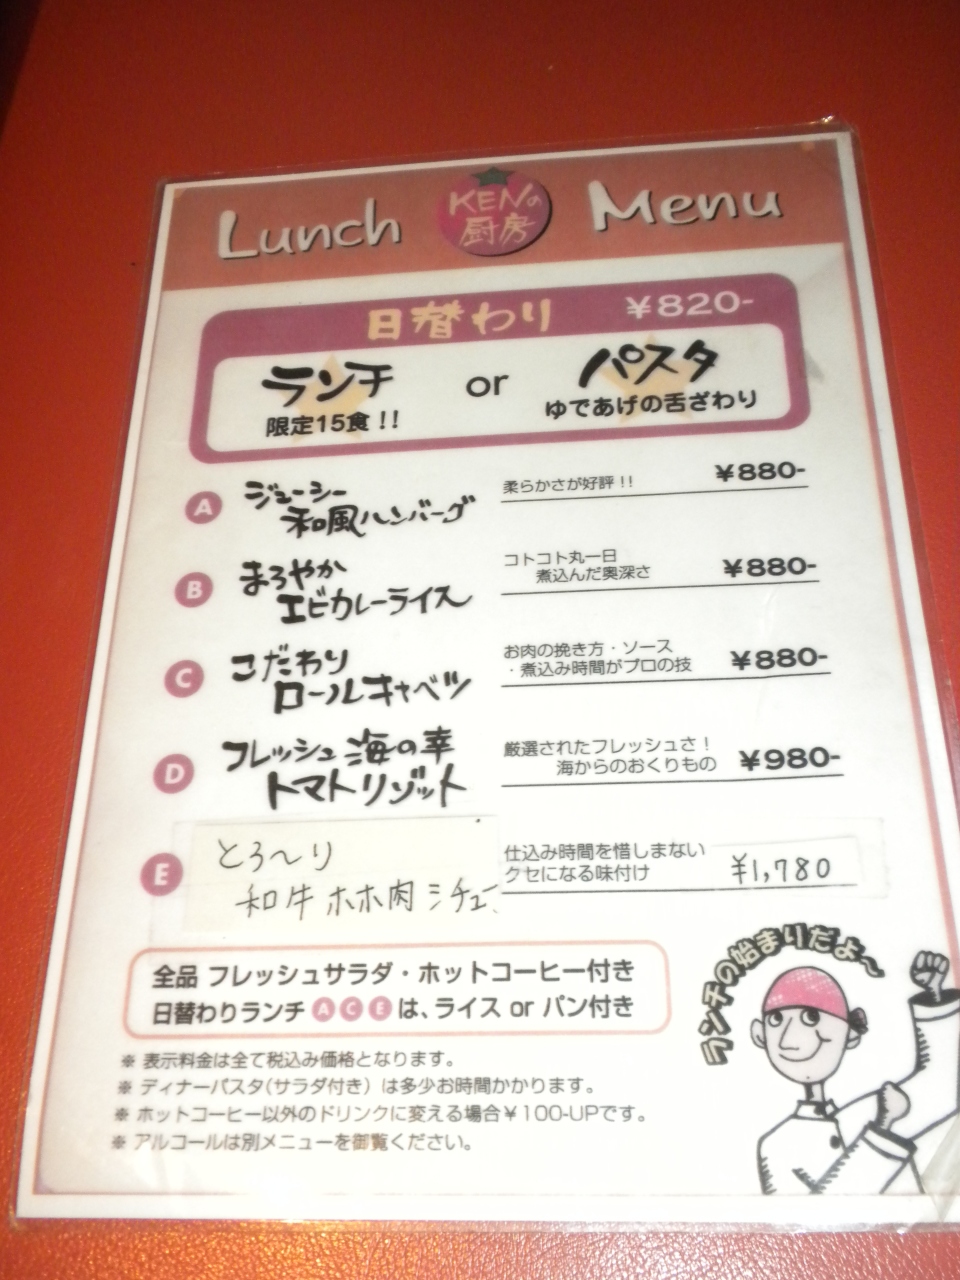 Lunch KENの厨房 Menu
日替わり ¥820-
ランチ or パスタ
限定15食!! ゆであげの舌ざわり
A ジューシー和風ハンバーグ 柔らかさが好評!! ¥880-
B まろやか
エビカレーライス
コトコト丸一日
煮込んだ奥深さ ¥880-
C こだわり
ロールキャベツ
お肉の挽き方・ソース
・煮込み時間がプロの技 ¥880-
D フレッシュ海の幸
トマトリゾット
厳選されたフレッシュさ!
海からのおくりもの ¥980-
E とろ〜り
和牛ホホ肉シチュー
仕込み時間を惜しまない
クセになる味付け ¥1,780
全品 フレッシュサラダ・ホットコーヒー付き
日替わりランチ A C E は、ライス or パン付き
※ 表示料金は全て税込み価格となります。
※ ディナーパスタ(サラダ付き)は多少お時間かかります。
※ ホットコーヒー以外のドリンクに変える場合¥100-UPです。
※ アルコールは別メニューを御覧ください。
ランチの始まりだよ〜